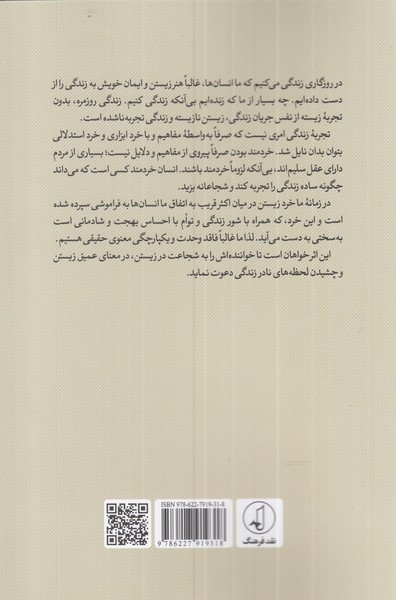 در روزگاری زندگی می‌کنیم که ما انسان‌ها، غالباً هنر زیستن و ایمان خویش به زندگی را از
دست داده‌ایم. چه بسیار از ما که زنده‌ایم بی‌آنکه زندگی کنیم. زندگی روزمره، بدون
تجربهٔ زیسته از نفس جریان زندگی، زیستن نازیسته و زندگی تجربه ناشده است.
تجربهٔ زندگی امری نیست که صرفاً به‌واسطهٔ مفاهیم و با خرد ابزاری و خرد استدلالی
بتوان بدان نایل شد. خردمند بودن صرفاً پیروی از مفاهیم و دلایل نیست؛ بسیاری از مردم
دارای عقل سلیم‌اند، بی‌آنکه لزوماً خردمند باشند. انسان خردمند کسی است که می‌داند
چگونه ساده زندگی را تجربه کند و شجاعانه بزید.
در زمانهٔ ما خرد زیستن در میان اکثر قریب به اتفاق ما انسان‌ها به فراموشی سپرده شده
است و این خرد، که همراه با شور زندگی و توأم با احساس بهجت و شادمانی است
به‌سختی به دست می‌آید. لذا ما غالباً فاقد وحدت و یکپارچگی معنوی حقیقی هستیم.
این اثر خواهان است تا خواننده‌اش را به شجاعت در زیستن، در معنای عمیق زیستن
و چشیدن لحظه‌های نادر زندگی دعوت نماید.
ISBN 978-622-7919-31-8
9 786227 919318
نقد فرهنگ